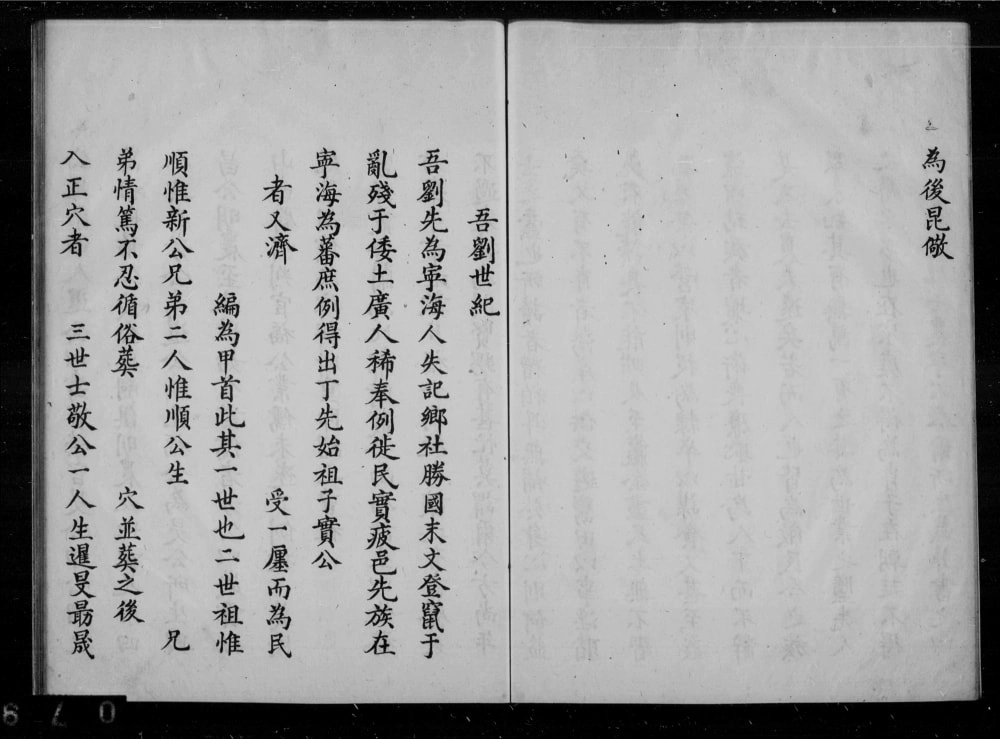 為後昆儆
吾劉世紀
吾劉先為寧海人失記鄉社勝國末文登竄于
亂殘于倭土廣人稀奉例徙民實疲邑先族在
寧海為蕃庶例得出丁先始祖子實公
者又濟 受一廛而為民
編為甲首此其一世也二世祖惟
順惟新公兄弟二人惟順公生 兄
弟情篤不忍循俗葬 穴並葬之後
入正穴者 三世士敬公一人生暹旻最晟
8 7 0